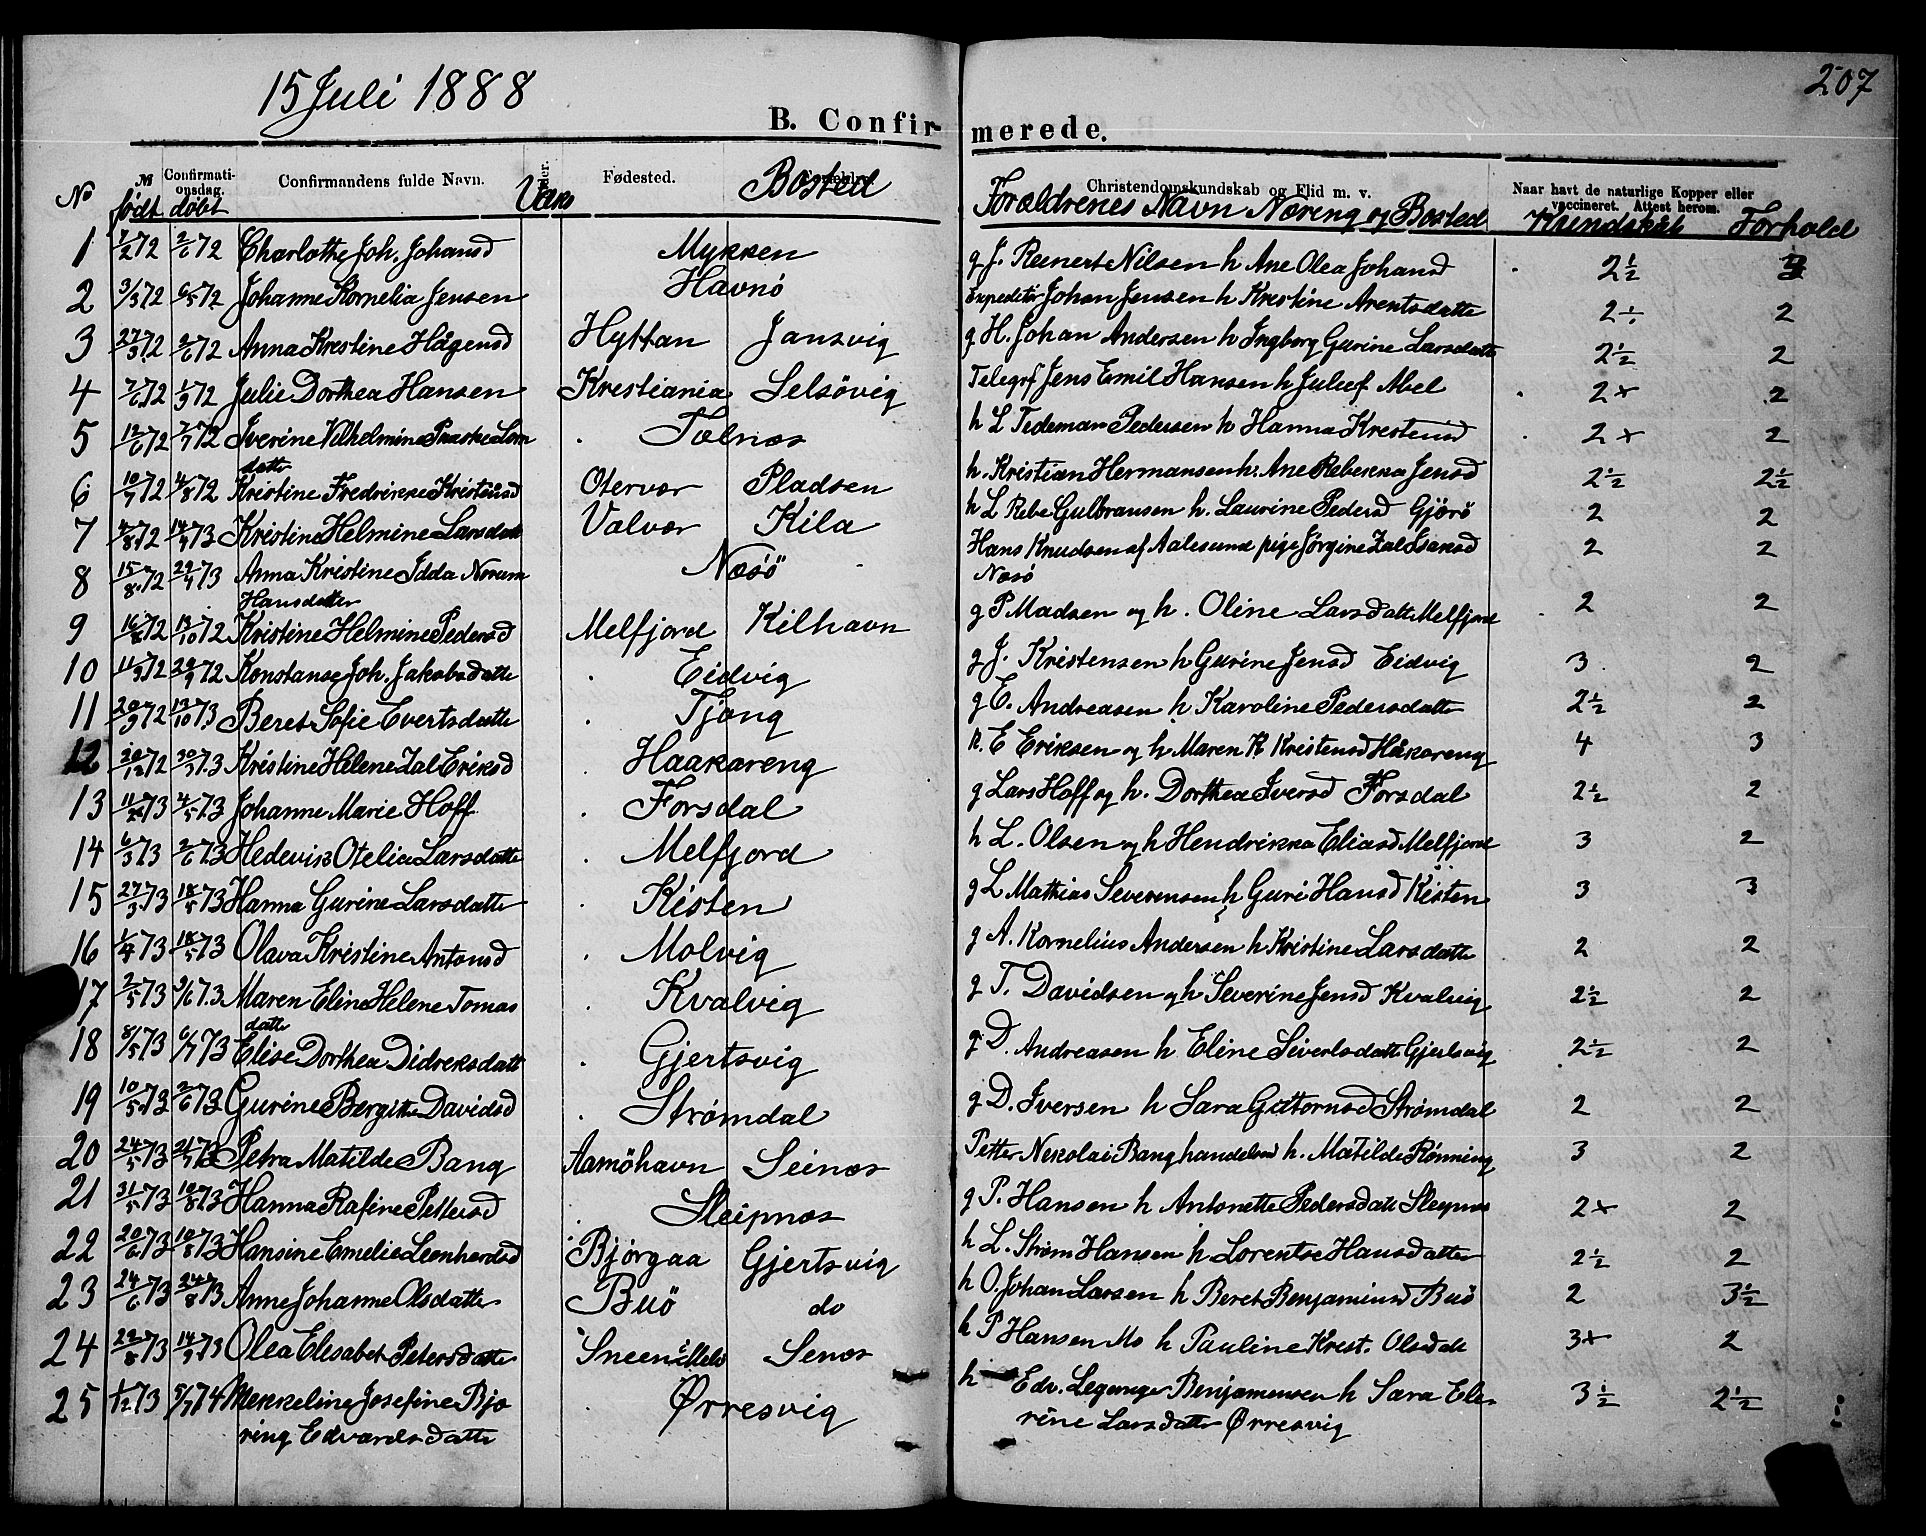 15 Juli 1888
207
B. Confirmerede.
No
M
Confirmationsdag.
Confirmandens fulde Navn.
Fødested.
Christendomskundskab og Flid m. v.
Naar havt de naturlige Kopper eller vaccineret. Attest herom.
født døbt Vac Bosted Forældrenes Navn Næring og Bosted Kundskab Forhold
1 7/2 72 2/6 72 Charlotte Joh. Johansd Mykken g J. Reenert Nilsen h Ane Olea Johansd 2 1/2
2 3/3 72 6/5 72 Johanne Kornelia Jensen Havnö Expeditör Johan Jensen h Kristine Arentsdatte 2 ÷ 2
3 27/3 72 2/6 72 Anna Kristine Hågensd Hyttan Jansvig g H. Johan Andersen h Ingborg Gurine Larsdatte 2 1/2 2
4 7/6 72 1/9 72 Julie Dorthea Hansen Krestiania Selsövig Telegrf Jens Emil Hansen h Julief Abel 2+ 2
5 12/6 72 7/7 72 Iverine Vilhelmine Paaske Lorn Tælnæs h L Tedeman Pedersen h Hanna Krestensd 2+ 2
datte
6 10/7 72 4/8 72 Kristine Fredrikke Kristensd Otervær Pladsen h. Kristian Hermansen h. Ane Rebekka Jensd 2 1/2 2 1/2
7 4/8 72 14/9 73 Kristine Helmine Larsdatt Valvær Kila h L Rebe Gulbransen h. Laurine Pedersd Gjörö 2 2
8 15/8 72 29/9 73 Anna Kristine Idda Norum Næsö Hans Knudsen af Aalesund pige Jørgine Zal Isaksd 2 2
Hansdatter Næsö
9 16/8 72 13/10 72 Kristine Helmine Pedersd Melfjord Kilhavn g P Madsen og h. Oline Larsdatte Melfjord 2 2
10 11/9 72 29/9 72 Konstanse Joh. Jakobsdatte Eidvig g J. Kristensen h Gurine Jensd Eidvig 3 2
11 20/9 72 13/10 73 Beret Sofie Evertsdatte Tjong g E. Andreasen h Karoline Pedersdatte 2 1/2 2
12 20/12 72 30/3 73 Kristine Helene Zal Eriksd Haakareng K. E Eriksen og h Maren K Kristensd Håkareng 4 3
13 73 4/5 73 Johanne Marie Hoff Forsdal g Lars Hoff og h. Dorthea Iversd Forsdal 2 1/2 2
14 6/3 73 2/6 73 Hedevik Otelia Larsdatte Melfjord h L. Olsen og h Hendrikka Eliasd Melfjord 3 2
15 27/3 73 18/5 73 Hanna Gurine Larsdatte Kisten g L Mathias Severensen h Guri Hansd Kisten 3 3
16 1/4 73 18/5 73 Olava Kristine Antonsd Molvig g A. Kornelius Andersen h Kristine Larsdatte 2 2
17 2/5 73 2/6 73 Maren Eline Helene Tomas Kvalvig g T. Davidsen og h Severine Jensd Kvalvig 2 1/2 2
datte
18 8/5 73 6/7 73 Elise Dorthea Didreksdatt Gjertsvig g D. Andreasen h Eline Siverlsdatte Gjertsvig 2 1/2 2
19 10/5 73 2/6 73 Gurine Bergitte Davidsd Strømdal g D. Iversen h Sara Guttormsd Strømdal 2 2
20 24/5 73 21/7 73 Petra Matilde Bang Aamöhavn Seinæs Petter Nekolai Bang handelsm h. Matilde Rönning 3 2
21 31/5 73 10/8 73 Hanna Rafine Pettersd Sleipnæs g P. Hansen h Antonette Pedersdatt Sleipnæs 2+ 2
22 20/6 73 10/8 73 Hansine Emelie Leonhardsd Björgaa Gjertsvig h L. Strøm Hansen h Lorentse Hansdatter 2 1/2 2
23 24/6 73 24/8 73 Anne Johanne Olsdatte Buö do h O. Johan Larsen h Beret Benjaminsd Buö 2 3 1/2
24 22/8 73 14/9 73 Olea Elisabet Petersdatte Senæs h P Hansen Mo h Pauline Krest. Olsdatt 3+ 2
25 1/12 73 5/7 74 Mekkeline Josefine Bjø Ørresvig h Edv. Legange Benjamensen h Sara Ele- 3 1/2 2 1/2
ring Edvardsdatte rine Larsdatte Ørresvig